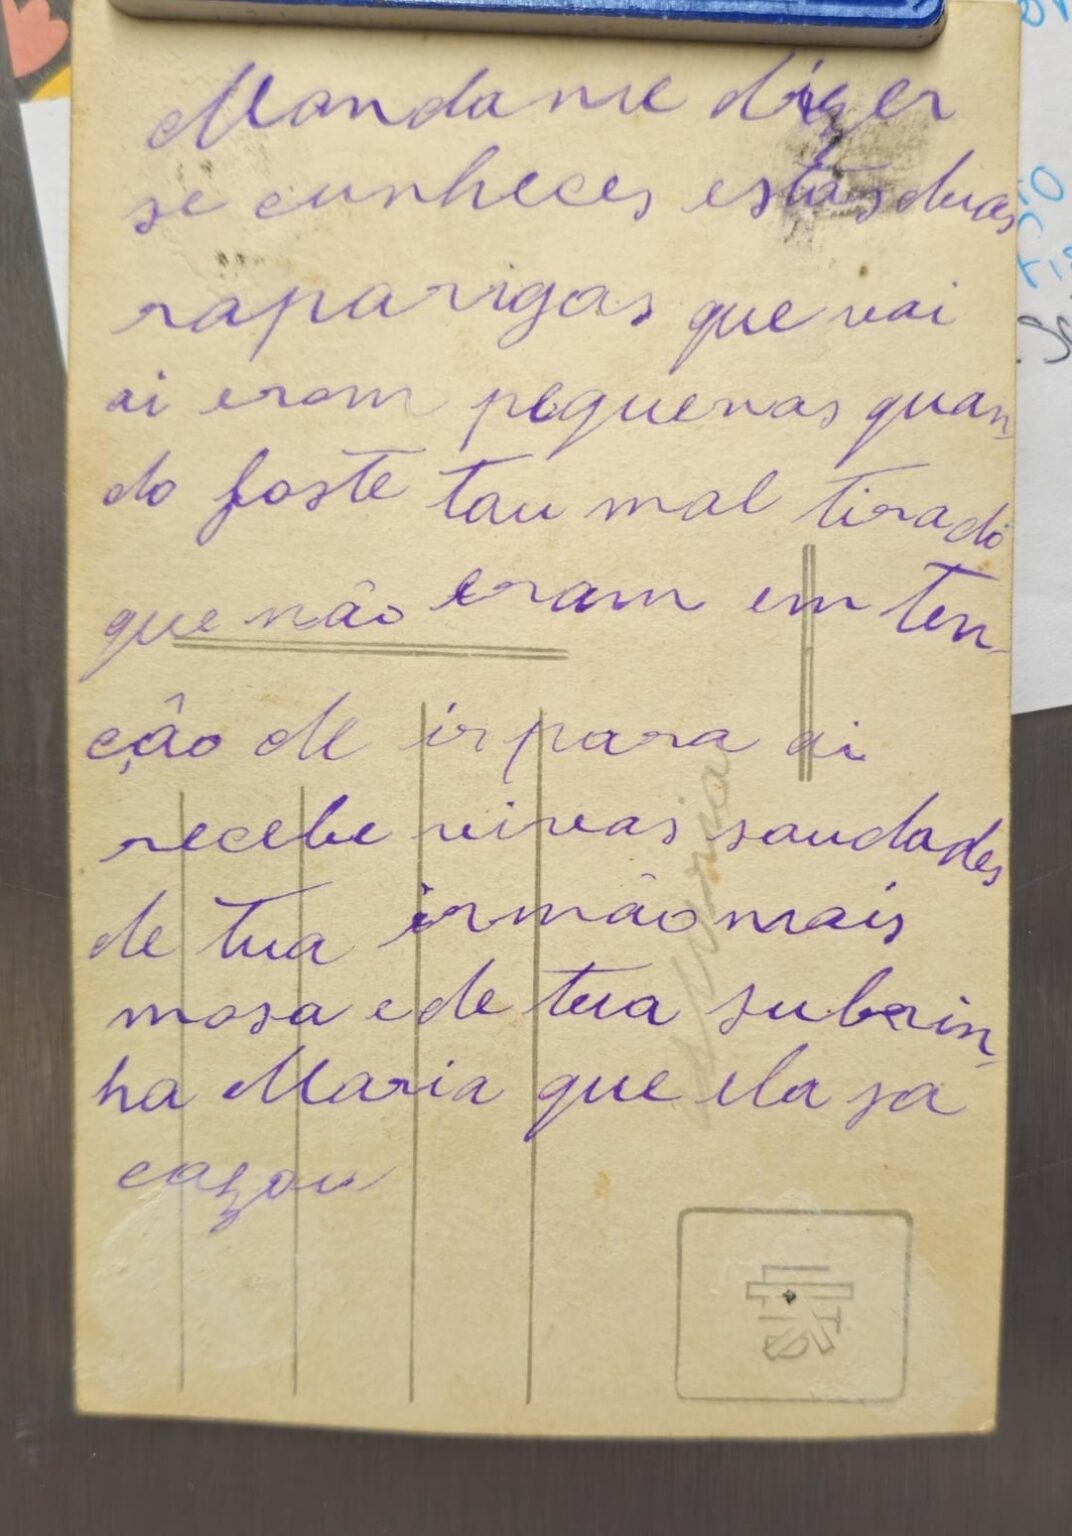 Manda me dizer
se cunheces estas duas
raparigas que vai
ai erom pequenas quan-
do foste tau mal tirado
que não eram em ten-
ção de ir para ai
recebe vivas saudades
de tua irmão mais
mosa e de tua subrin-
ha Maria que ela sa
cazou